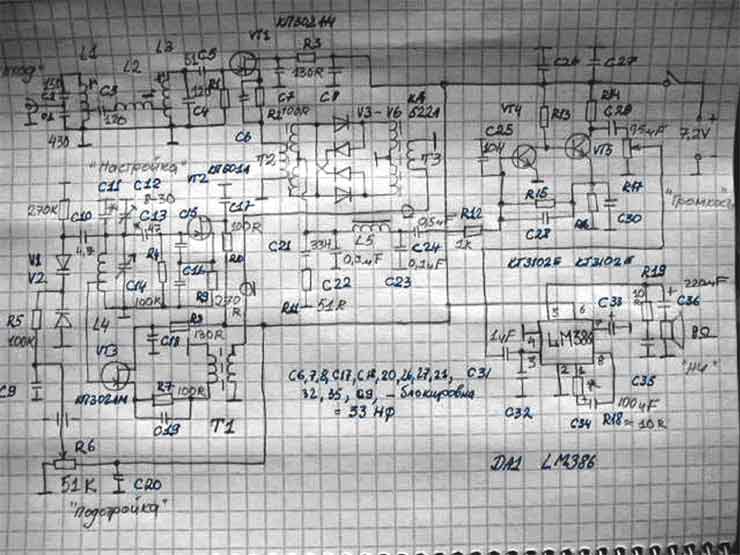 L1
L2
L3
C5
51
VT1
R3
130R
C3
120
C4
120
R1
C6
C7
C8
R2
100R
430
T2
V3-V6
522A
T3
C26
C27
VT4
R13
R14
C29
C25
10H
VT5
7,2V
"Настройка"
C11
C12
8-30
C13
47
C15
VT2
КТ601А
C17
100R
270K
C10
4,7
V1
V2
C14
R4
100K
C16
R9
270R
L4
R5
100K
C9
VT3
КТ3024М
C18
130R
R7
100R
C19
T1
R6
51K
C20
"подстройка"
C21
33H
R11
51R
C22
0,1мF
L5
C24
0,1мF
C23
R12
1K
R15
C28
R17
C30
"Громкость"
КТ3102Е
КТ3102Е
R19
1мF
5
6
4
LM386
3
2
1
8
C33
C36
220мF
8Ω
"НЧ"
C35
C32
C34
R18
100мF
10R
C31
C6,7,8,C17,C18,20,26,27,21,
32,35,
- блокировка
= 33 НФ
DA1 LM386